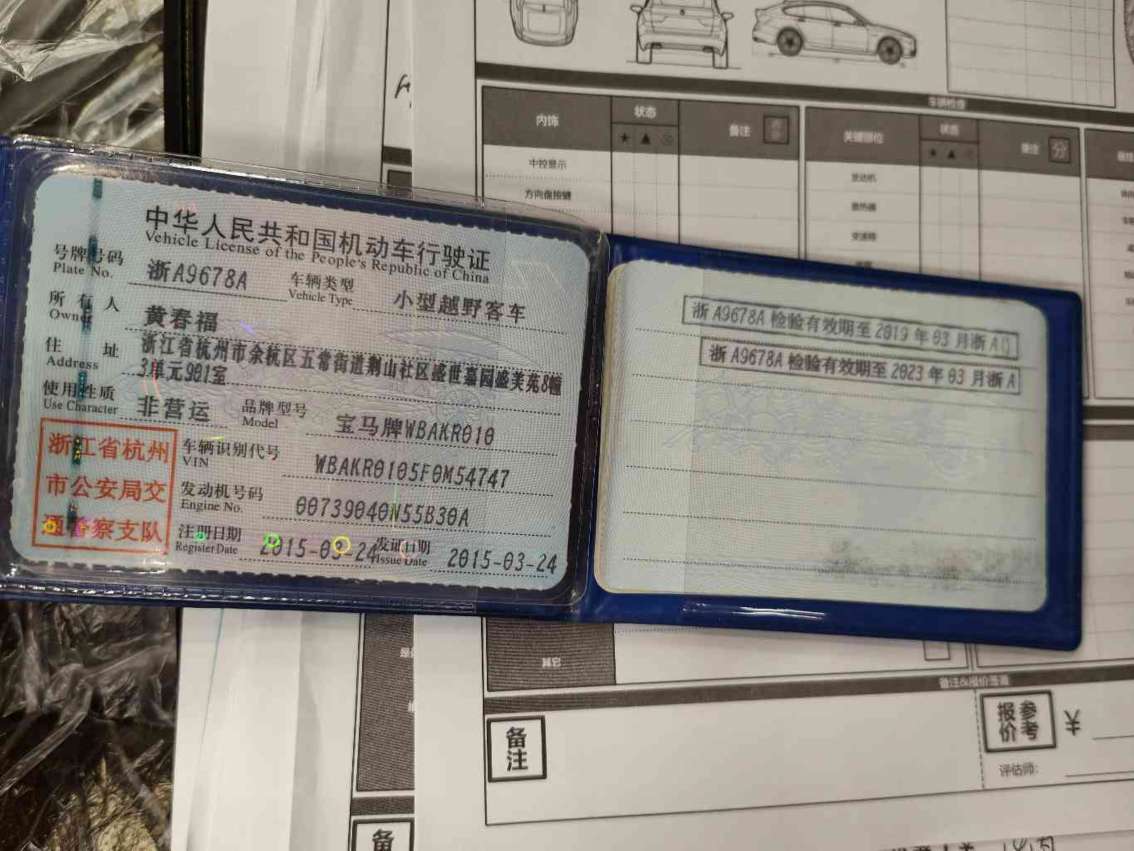 内饰
状态
★ ▲
备注
中控显示
方向盘按键
车辆检查
关键部位
状态
★ ▲
备注
发动机
散热器
变速箱
中华人民共和国机动车行驶证
Vehicle License of the People's Republic of China
号牌号码
Plate No.
浙A9678A
车辆类型
Vehicle Type
小型越野客车
所有人
Owner
黄春福
住址
Address
浙江省杭州市余杭区五常街道荆山社区盛世嘉园盛美苑8幢
3单元901室
使用性质
Use Character
非营运
品牌型号
Model
宝马牌WBAKR010
浙江省杭州
市公安局交
通警察支队
车辆识别代号
VIN
WBAKR0105F0M54747
发动机号码
Engine No.
00739040N55B30A
注册日期
Register Date
2015-03-24
发证日期
Issue Date
2015-03-24
浙A9678A 检验有效期至2019年03月浙A
浙A9678A 检验有效期至2023年03月浙A
其它
备注&报价落款
备注
参考
报价
¥
评估师:
备